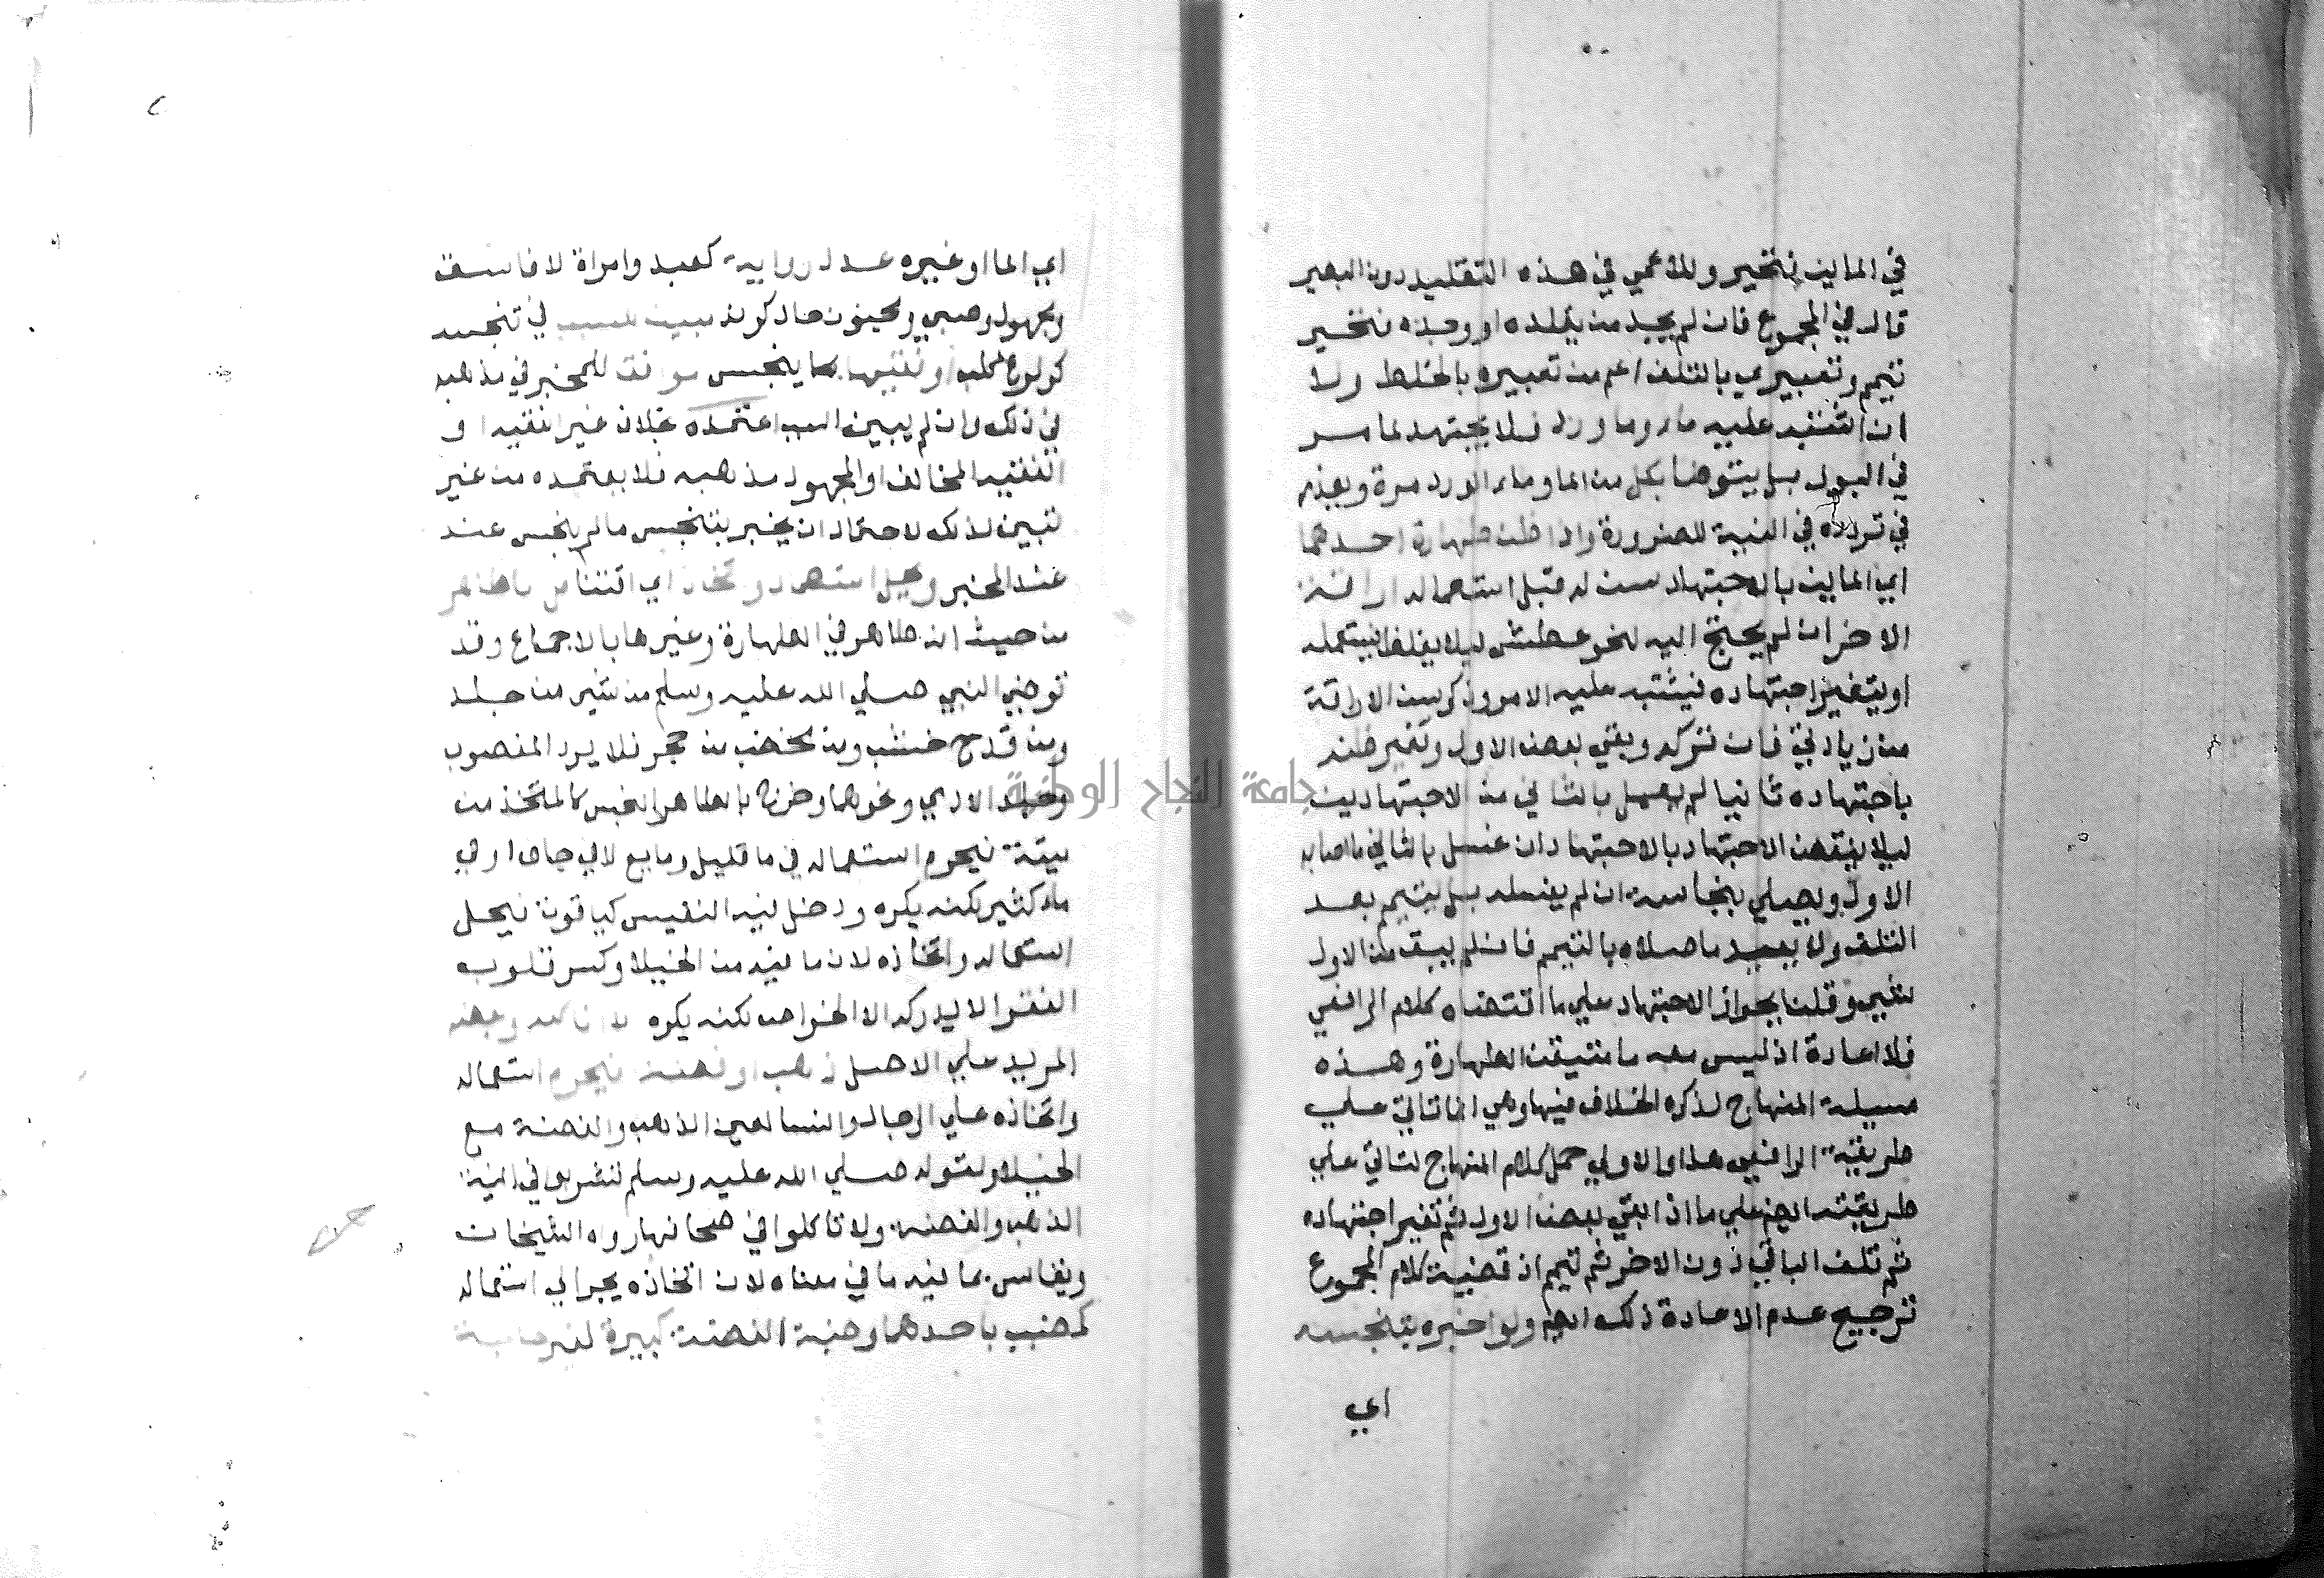 في الماين فتحير وللاعمي في هذه التقليد دون البصير
قال في المجموع فان لم يجد من يقلده او وجده فتحير
تيمم وتعبيري بالتلف اعم من تعبيره بالخلط ولا
ان اشتبه عليه ماء وماورد فلا يجتهد لما مر
في البول بل يتوضا بكل من الما وماء الورد مرة ويعذر
في تردده في النية للضرورة واذا ظن طهارة احدهما
اي الماين بالاجتهاد سن له قبل استعماله اراقة
الاخر ان لم يحتج اليه لنحو عطش ليلا يغلط فيستعمله
او يتغير اجتهاده فيشتبه عليه الامر وذكر سن الاراقة
من زيادتي فان تركه وبقي بعض الاول وتغير ظنه
باجتهاده ثانيا لم يعمل بالثاني من الاجتهادين
ليلا ينقض الاجتهاد بالاجتهاد ان غسل بالثاني ما اصابه
الاول ويصلي بنجاسة ان لم يغسله بل يتيمم بعد
التلف ولا يعيد ما صلاه بالتيمم فان لم يبق من الاول
شي وقلنا بجواز الاجتهاد علي ما اقتضاه كلام الرافعي
فلا اعادة اذ ليس معه ما متيقن الطهارة وهذه
مسيلة المنهاج لذكره الخلاف فيها وهي انما تاتي علي
طريقة الرافعي هذا والاولي حمل كلام المنهاج لتاتي علي
طريقته ايضا علي ما اذا بقي بعض الاول ثم تغير اجتهاده
ثم تلف الباقي دون الاخر ثم تيمم اذ قضية كلام المجموع
ترجيح عدم الاعادة ذلك ايضا ولو اخبره بتنجسه
اي
اي الما او غيره عدل رواية كعبد وامراة لا فاسق
ومجهول وصبي ومجنون حال كونه مبينا للسبب في تنجسه
كولوغ كلب او فقيها بما ينجس موافقا للمخبر في مذهبه
في ذلك وان لم يبين السبب اعتمده بخلاف غير الفقيه او
الفقيه المخالف او المجهول مذهبه فلا يعتمده من غير
تبين لذلك لاحتمال ان يخبر بتنجس ما لم ينجس عند
عند المخبر ويحل استعمال واتخاذ اي اقتنا كل اناء طاهر
من حيث انه طاهر في الطهارة وغيرها بالاجماع وقد
توضي النبي صلي الله عليه وسلم من شن من جلد
ومن قدح خشب ومن مخضب من حجر فلا يرد المغصوب
وجلد الادمي ونحوهما وخرج بالطاهر النجس كالمتخذ من
ميتة فيحرم استعماله في ما قليل ومايع لا في جاف او في
ماء كثير لكنه يكره ودخل فيه النفيس كياقوت فيحل
استعماله واتخاذه لان ما فيه من الخيلا وكسر قلوب
الفقرا لا يدركه الا الخواص لكنه يكره لا اناء كله وبعضه
المزيد علي الاصل ذهب او فضة فيحرم استعماله
واتخاذه علي الرجال والنسا لعين الذهب والفضة مع
الخيلا ولقوله صلي الله عليه وسلم لا تشربوا في انية
الذهب والفضة ولا تاكلوا في صحافها رواه الشيخان
ويقاس بما فيه ما في معناه لان اتخاذه يجر الي استعماله
كمضبب باحدهما وضبة الفضة كبيرة لغير حاجة
جامعة النجاح الوطنية